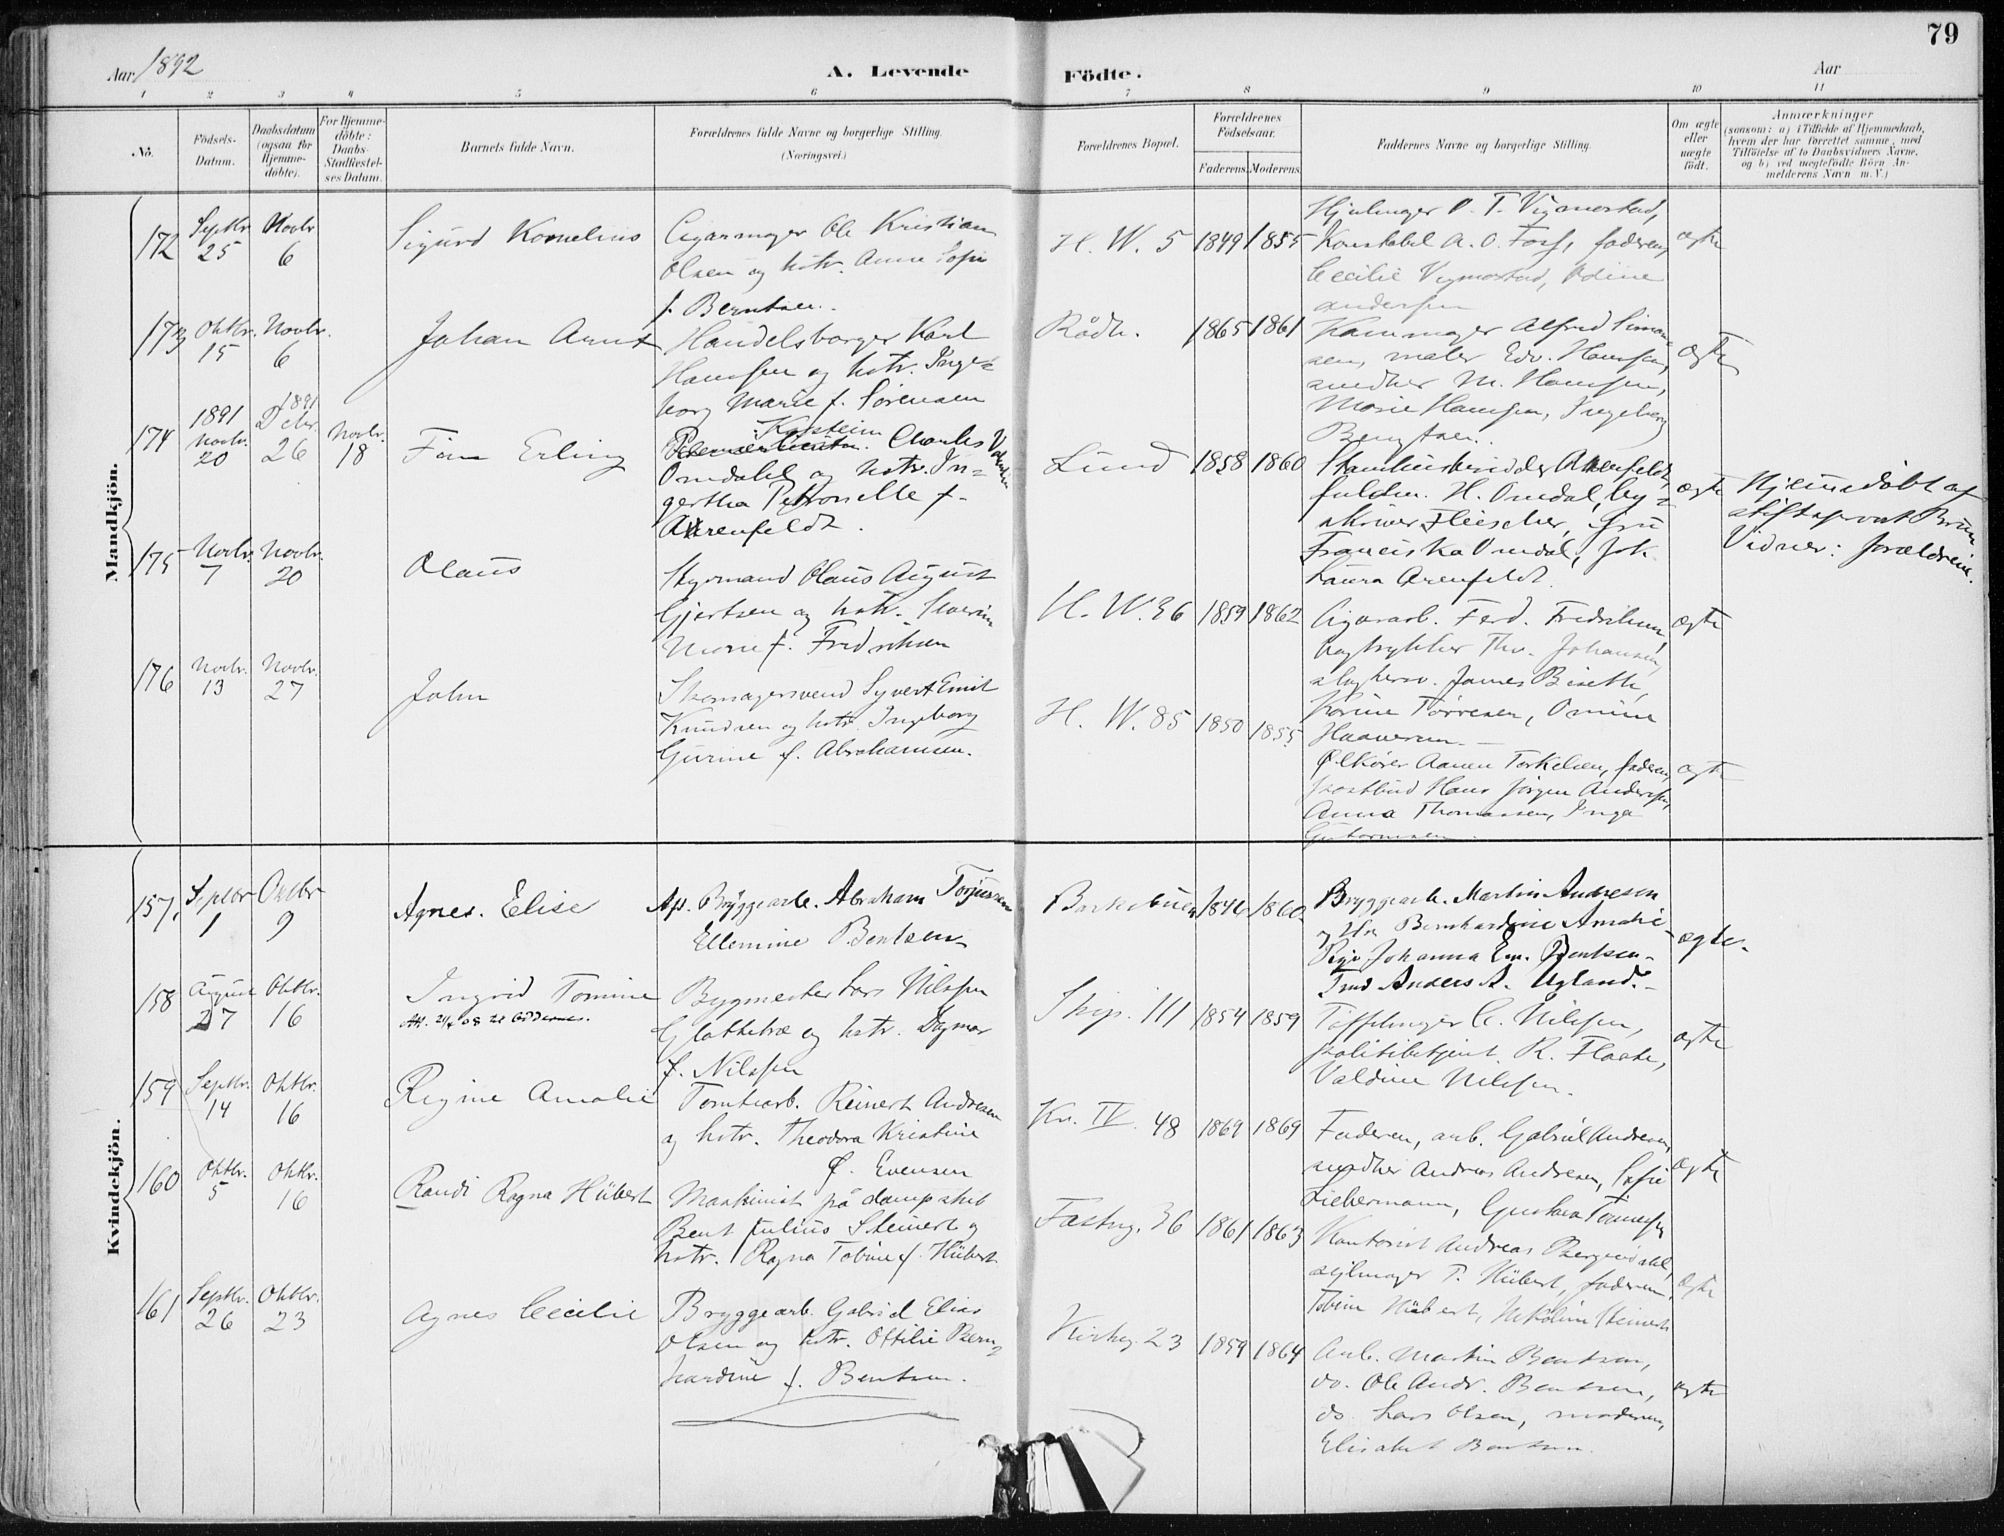 79
Aar 1892
A. Levende
Födte.
Aar
1 2 3 4 5 6 7 8 9 10 11
No.
Födsels-Datum.
Daabsdatum (ogsaa for Hjemmedöbte).
For Hjemmedöbte: Daabs-Stadfestelses Datum.
Barnets fulde Navn.
Forældrenes fulde Navne og borgerlige Stilling.
(Næringsvei.)
Forældrenes Bopæl.
Forældrenes Födselsaar.
Faderens.
Moderens.
Faddernes Navne og borgerlige Stilling.
Om ægte eller uægte födt.
Anmærkninger
(saasom: a) i Tilfælde af Hjemmedaab, hvem der har forrettet samme, med Tilföielse af to Daabsvidners Navne, og b) ved uægtefödte Börn Anmelderens Navn m. V.)
Mandkjön.
172 Septbr. 25 Novbr. 6
Sigurd Kornelius
Cigarmager Ole Kristian
Olsen og hstr. Anne Sofie
f. Berntsen.
H. W. 5 1849 1855
O. T. Vigmostad,
Konstabel A. O. Foss, faderen,
Cecilie Vigmostad, Odine
Andersen
ægte
173 Oktbr. 15 Novbr. 6
Johan Arnt
Handelsborger Karl
Hanssen og hstr. Inge=
borg Marie f. Sörensen
Rådh. 1865 1861
Kammager Alfred Simon
sen, maler Edv. Hanssen,
snedker M. Hanssen,
Marie Hanssen, Ingeborg
Bengtsen.
ægte
174 1891 Novbr. 20 1891 Decbr. 26 Novbr. 18
Finn Erling
Charles
Omdahl og hstr. In=
gertha Petronelle f.
Arenfeldt.
Lund 1858 1860
Arenfeldt
H. Omdal, by=
skriver Fleischer, fru
Franciska Omdal, frk.
Laura Arenfeldt.
ægte
Hjemmedöbt af
stiftsprovst Brun
Vidner: forældrene.
175 Novbr. 7 Novbr. 20
Olaus
Styrmand Olaus August
Gjertsen og hstr. Severine
Marie f. Fredriksen
H. W. 36 1859 1862
Cigararb. Ferd. Fredriksen,
bogtrykker Thv. Johansen,
slagtersv. James Bisett,
Karine Törresen, Omine
ægte
176 Novbr. 13 Novbr. 27
John
Skomagersvend Syvert Emil
Knudsen og hstr. Ingeborg
Gurine f. Abrahamsen.
H. W. 85 1850 1855
Ölkörer Aanen Torkelsen, faderen,
postbud Hans Jörgen Andersen,
Anna Thomassen, Inga
Guttormsen.
ægte
Kvindekjön.
157, Septbr 1 Octbr 9
Agnes. Elise
Af. Bryggearb. Abraham Torjussen
Ellemine Bentsen
1846 1860
Bryggearb. Martin Andresen
og Hstr Bernhardine Amalie
Pige Johanna Em. Bentsen
Anders A. Ugland.
ægte.
158 August 27 Oktbr. 16
Ingrid Tomine
Bygmester Lars Nilssen
Glattetræ og hstr. Dagmar
f. Nilssen
Skip. 111 1854 1859
Töffelmager C. Nilssen,
politibetjent R. Flaate,
Valdine Nilssen.
ægte
159 Septbr. 14 Oktbr. 16
Regine Amalie
Tomtearb. Reinert Andresen
og hstr. Theodora Kristine
f. Evensen
Kr. IV. 48 1869 1869
Faderen, arb. Gabriel Andresen,
snedker Andreas Andresen, Sofie
Liebermann, Gustava Tönnessen
ægte
160 Oktbr. 5 Oktbr. 16
Randi Ragna Hübert
Maskinist på dampskib
Bent Julius Steinert og
hstr. Ragna Tobine f. Hübert
Fæstng. 36 1861 1863
Kontorist Andreas Bergendahl,
seilmager P. Hübert, faderen,
Tobine Hübert, Nikoline Steinert
ægte
161 Septbr. 26 Oktbr. 23
Agnes Cecilie
Bryggearb. Gabriel Elias
Olsen og hstr. Ottilie Bern=
hardine f. Bentsen.
Kirkeg. 23 1859 1864
Arb. Martin Bentsen,
do. Ole Andr. Bentsen,
do. Lars Olsen, moderen,
Elisabet Bentsen.
ægte